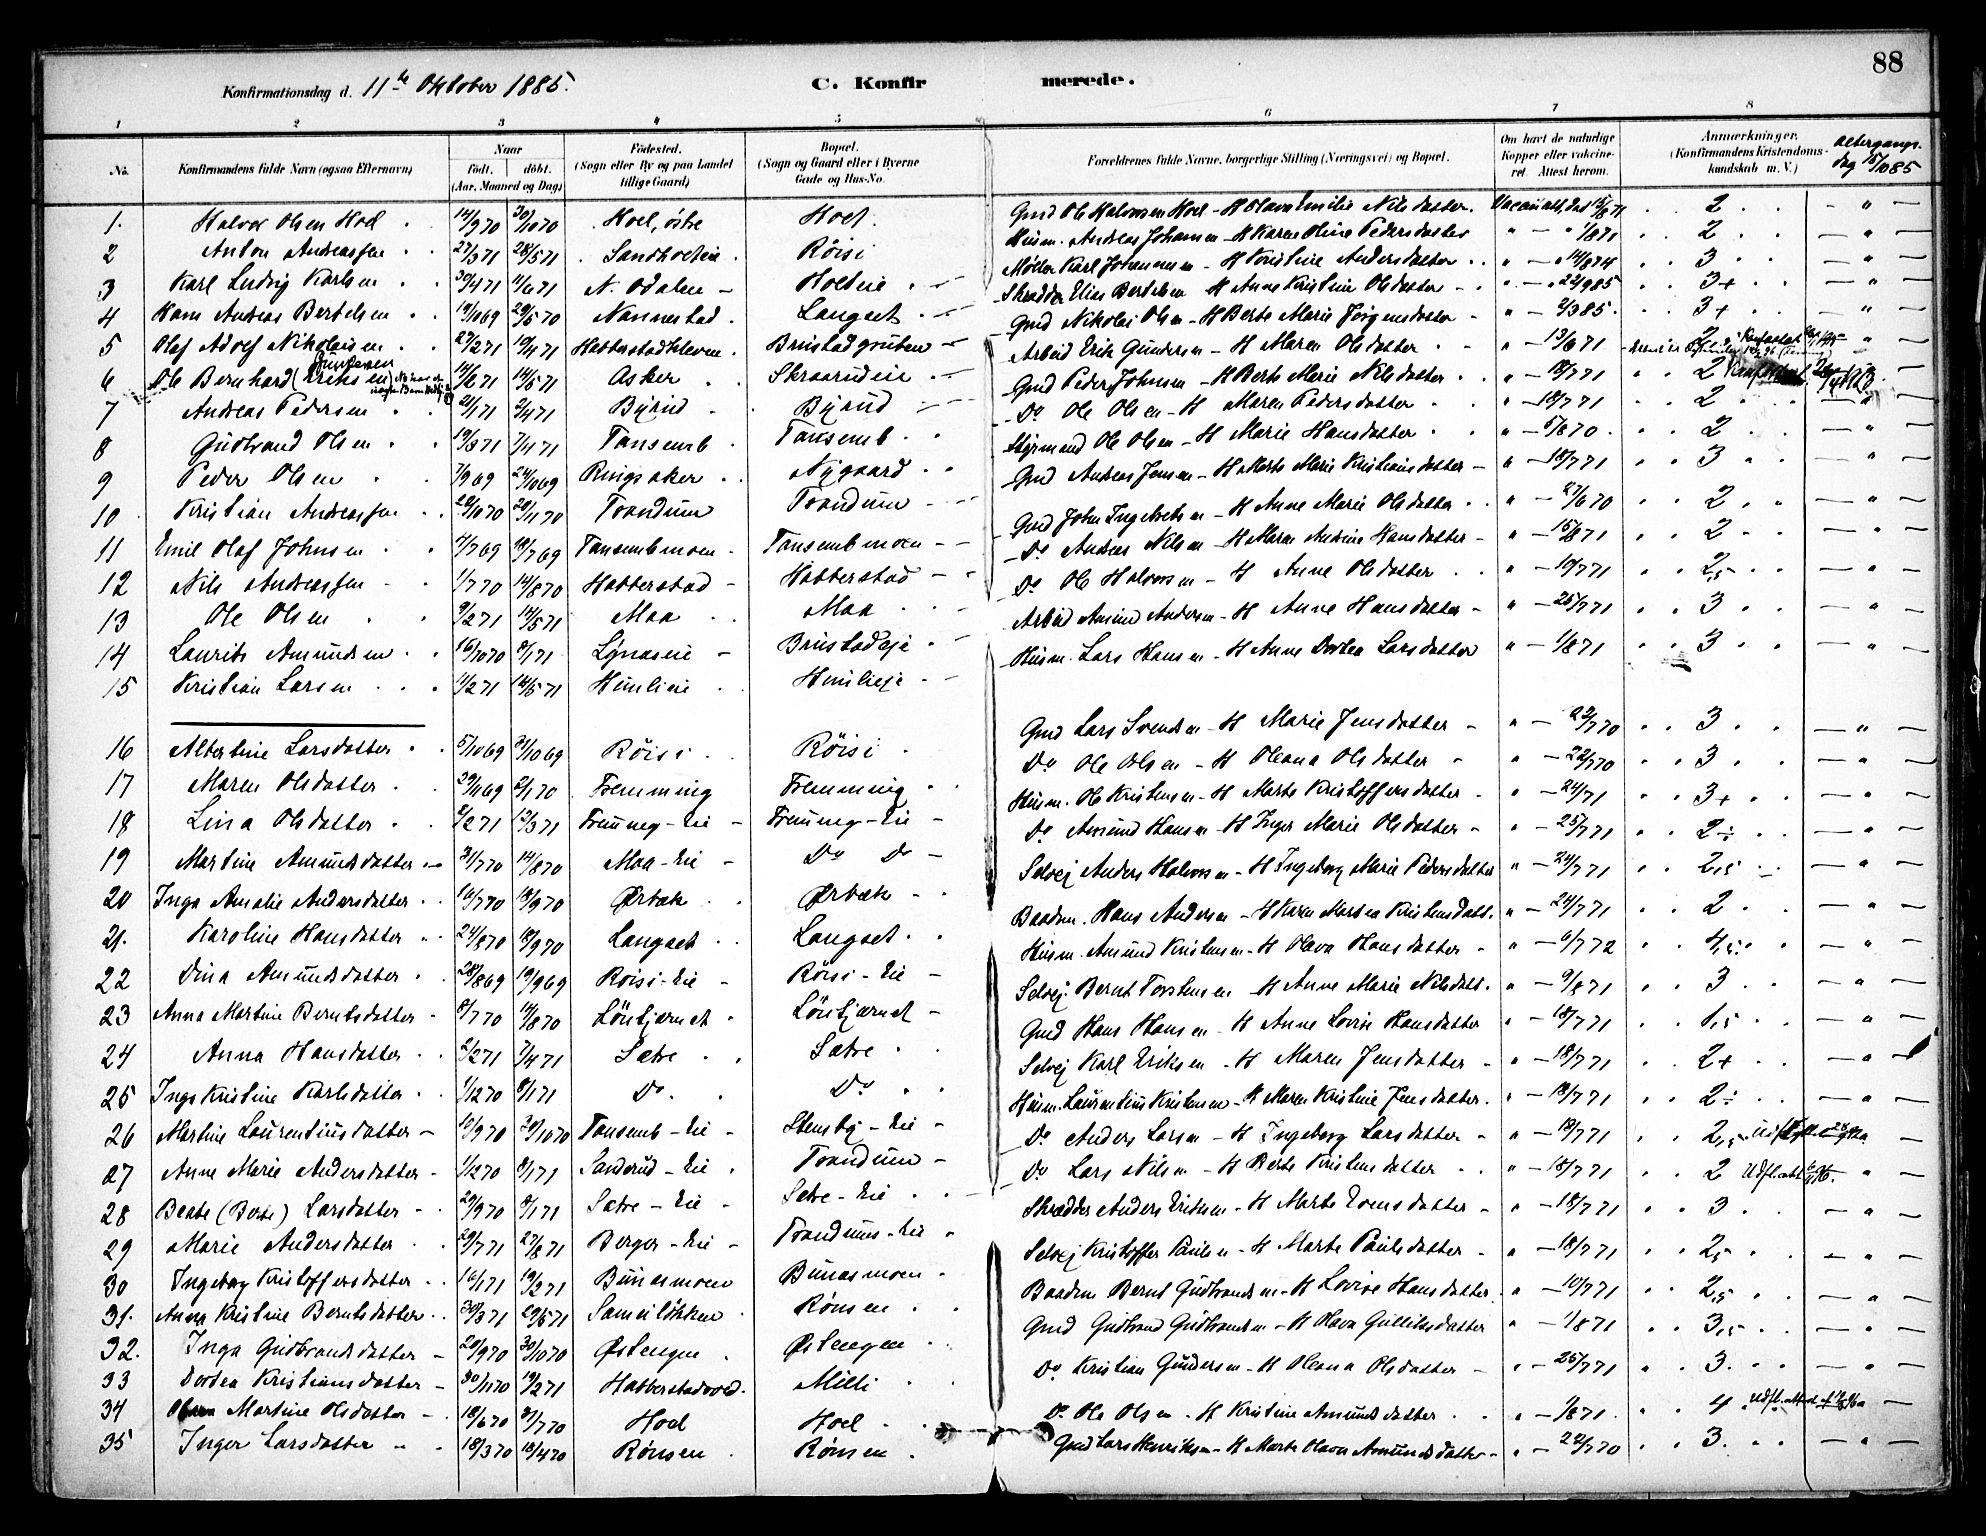 88
Konfirmationsdag d. 11te Oktober 1885. C. Konfirmerede.
1 2 3 4 5 6 7 8
No. Konfirmandens fulde Navn (ogsaa Efternavn) Naar født, døbt. (Aar, Maaned og Dag) Fødested. (Sogn eller By og paa Landet tillige Gaard) Bopæl. (Sogn og Gaard eller i Byerne Gade og Hus-No. Forældrenes fulde Navne, borgerlige Stilling (Næringsvei) og Bopæl. Om havt de naturlige Kopper eller vakcineret. Attest herom. Anmærkninger. (Konfirmandens Kristendomskundskab m. V.) Altergangsdag 15/10 85
1. Halvor Olsen Hoel 14/9 70 30/10 70 Hoel, østre Hoel. Gmd Ole Halvorsen Hoel - H Olava Emilie Nilsdatter. Vac. an att. dat 15/8 71 2
2 Anton Andreassen 27/3 71 28/5 71 Sandholteie Röisi Husm. Andreas Johansen - H Karen Oline Pedersdatter 1/8 71 2
3 Karl Ludvig Karlsen 30/4 71 11/6 71 N. Odalen Holteie Møller Karl Johannesen - H Kristine Andersdatter 14/8 74 3
4 Hans Andreas Bertelsen 19/10 69 29/5 70 Nannestad Langset Skrædder Elias Bertelsen H Anne Kristine Olsdatter 22/9 85 3+
5 Olaf Adolf Nikolaisen 27/2 71 10/4 71 Habberstad kleven Brustadgruben Gmd Nikolai Olsen - H Berte Marie Jörgensdatter 2/3 85 3+
6 Ole Bernhard (Eriksen) Gundersen 11/6 71 14/5 71 Asker Skraarudeie Arbeid Erik Gundersen - H Maren Olsdatter 13/6 71 2
7 Andreas Pedersen 21/1 71 2/4 71 Byrud Byrud Gmd Peder Johnsen - H Berte Marie Nilsdatter 18/7 71 2
8 Gudbrand Olsen 19/3 71 7/4 71 Tansemb Tansemb Do Ole Olsen - H Maren Pedersdatter 18/7 71 2
9 Peder Olsen 7/9 69 24/10 69 Ringsaker Nygaard Styrmand Ole Olsen - H Marie Hansdatter 5/8 70 2
10 Kristian Andreassen 20/10 70 20/11 70 Trandum Trandum Gmd Andreas Jensen - H Marte Marie Kristiansdatter 18/7 71 3
11 Emil Olaf Johnsen 7/7 69 18/7 69 Tansembmoen Tansembmoen Gmd John Ingebretsen - H Anne Marie Olsdatter 27/6 70 2
12 Nils Andreassen 1/7 70 14/8 70 Habberstad Habberstad Do Andreas Nilsen - H Maren Andrine Hansdatter 15/8 71 2
13 Ole Olsen 9/2 71 14/5 71 Maa Maa Do Ole Halvorsen - H Anne Olsdatter 19/7 71 2,5
14 Laurits Amundsen 16/10 70 8/1 71 Lynæseie Brustadeje Arbeid Amund Andersen - H Anne Hansdatter 25/7 71 3
15 Kristian Larsen 11/2 71 14/5 71 Humlieie Humlieje Husm. Lars Hansen - H Anne Dortea Larsdatter 1/8 71 3
16 Albertine Larsdatter 5/10 69 31/10 69 Röisi Röisi Gmd Lars Svendsen - H Marie Jensdatter 22/7 70 3
17 Maren Olsdatter 29/11 69 2/1 70 Fremming Fremming Do Ole Olsen - H Oleana Olsdatter 22/7 70 3
18 Lina Olsdatter 2/2 71 12/3 71 Fremmg-Eie Fremmg-Eie Husm. Ole Kristensen - H Marte Kristoffersdatter 24/71 3+
19 Martine Amundsdatter 31/7 70 14/8 70 Maa-Eie Do Do Do Amund Hansen - H Inger Marie Olsdatter 25/7 71 2÷
20 Inga Amalie Andersdatter 16/7 70 18/9 70 Ørbæk Ørbæk Selvej Anders Halvorsen - H Ingeborg Marie Pedersdatter 24/7 71 2,5
21. Karoline Hansdatter 24/8 70 18/9 70 Langset Langset Baadm. Hans Andersen - H Karen Martea Kristensdatt. 24/7 71 2
22 Dina Amundsdatter 28/8 69 19/9 69 Roisi-Eie Röisi-Eie Husm. Amund Kristensen - H Olava Hansdatter 6/7 72 4,5
23 Anna Martine Berntsdatter 8/7 70 14/8 70 Lönbjernet Lönbjernet Selvej. Bernt Torstensen - H Anne Marie Nilsdatt. 9/8 71 3
24 Anna Hansdatter 2/2 71 7/4 71 Sætre Sætre Gmd Hans Hansen - H Anne Lovise Hansdatter 18/7 71 1,5
25 Inga Kristine Karlsdatter 1/12 70 8/1 71 Do Do Selvej Karl Eriksen - H Maren Jensdatter 18/7 71 2+
26 Martine Laurentiusdatter 10/9 70 30/10 70 Tansemb-Eie Stensby-Eie Husm. Laurentius Kristensen - H Maren Kristine Jensdatter. 18/7 71 2÷
27 Anne Marie Andersdatter 1/12 70 8/1 71 Sanderud-Eie Trandum Do Anders Larsen - H Ingeborg Larsdatter 18/7 71 2,5
28 Beate (Berte) Larsdatter 20/9 70 8/1 71 Sætre-Eie Setre-Eie Do Lars Nilsen - H Berte Kristensdatter 18/7 71 2
29 Marie Andersdatter 20/7 71 27/8 71 Berger-Eie Trandum-Eie Skrædder Anders Eriksen - H Marte Evensdatter 18/7 71 3
30 Ingeborg Kristoffersdatter 16/1 71 19/2 71 Bunæsmoen Bunæsmoen Selvej Kristoffer Paulsen - H Marte Paulsdatter 18/7 71 2,5
31. Anna Kristine Berntsdatter 30/3 71 29/5 71 Samuelökken Rönsen Baadm Bernt Gudbrandsen - H Lovise Hansdatter. 10/7 71 2,5
32. Inga Gudbrandsdatter 20/9 70 30/10 70 Østengen Østengen Gmd Gudbrand Gudbrandsen - H Olava Gulliksdatter 1/8 71 3,5
33 Dortea Kristiansdatter 30/11 70 19/2 71 Habberstadvold. Milli Do Kristian Gundersen - H Oleana Olsdatter 25/7 71 3.
34 Martine Olsdatter 18/6 70 31/7 70 Hoel Hoel Do Ole Olsen - H Kristine Amundsdatter 1/8 71. 4
35 Inger Larsdatter 18/3 70 18/4 70 Rönsen Rönsen Gmd Lars Henriksen - H Marte Olava Amundsdatter 22/7 70 3.